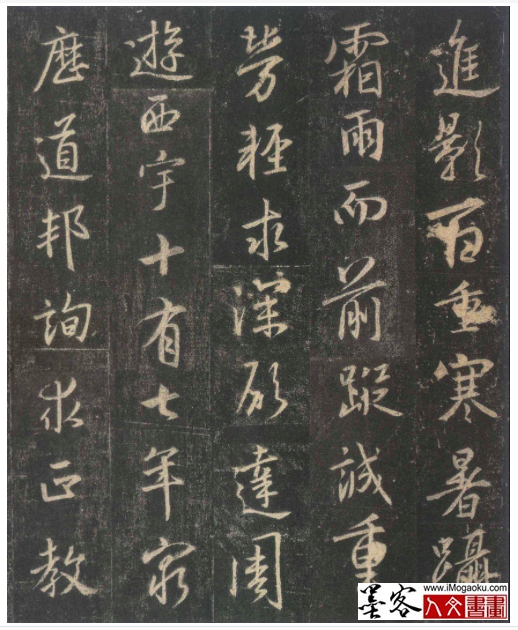 進影百重寒暑躡
霜雨而前蹤誠重
勞輕求深願達周
遊西宇十有七年窮
歷道邦詢求正教
www.iMogaoku.com
墨客
人文書畫